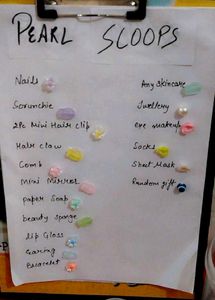 PEARL SCOOPS
Nails
Scrunchie
2Pc Mini Hair clip
Hair claw
Comb
Mini Mirror
paper Soap
beauty sponge
lip Gloss
Earing
Bracelet
Any Skincare
Jwellery
eye makeup
Socks
Sheet Mask
Random gift